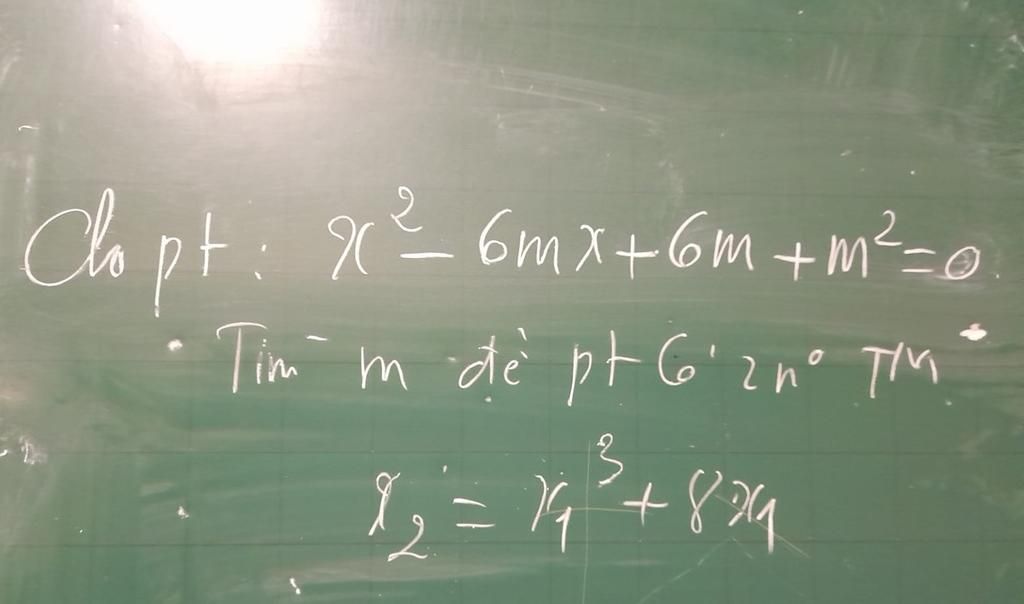 Cho pt: x² - 6mx + 6m + m² = 0
Tìm m để pt có 2n° TM
x₂ = x₁³ + 8x₁